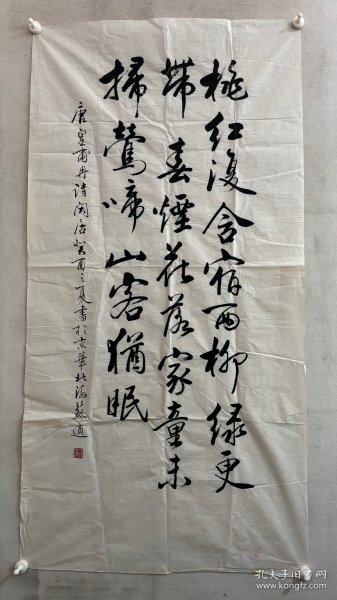 桃红复含宿雨柳绿更
带春烟花落家童未
扫莺啼山客犹眠
唐皇甫冉诗闲居癸酉之夏书於京华北海苏适
孔夫子旧书网
www.kongfz.com